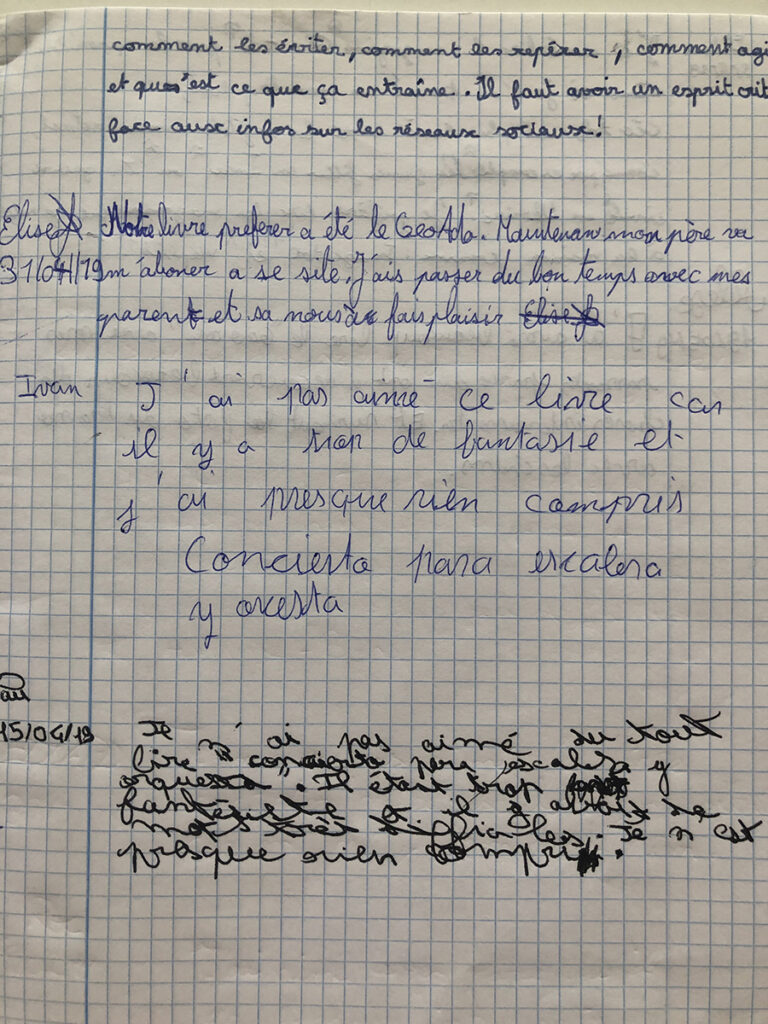 comment les éviter, comment les repérer, comment agi
et qu'est ce que ça entraîne. Il faut avoir un esprit crit
face aux infos sur les réseaux sociaux!
Elise Notre livre preferer a été le GeoAdo. Maintenant mon père va
31/04/19 m'aboner a se site. J'ais passer du bon temps avec mes
parent et sa nous a fais plaisir Elise
Ivan J'ai pas aimé ce livre car
il y a trop de fantasie et
j'ai presque rien compris
Concierto para escalera
y orcesta
au
15/04/19 Je n'ai pas aimé du tout
lire "concierto para escalera y
orquesta". Il était trop
fantésiste et il y avait
mots très difficiles. Je n'est
presque rien compris.